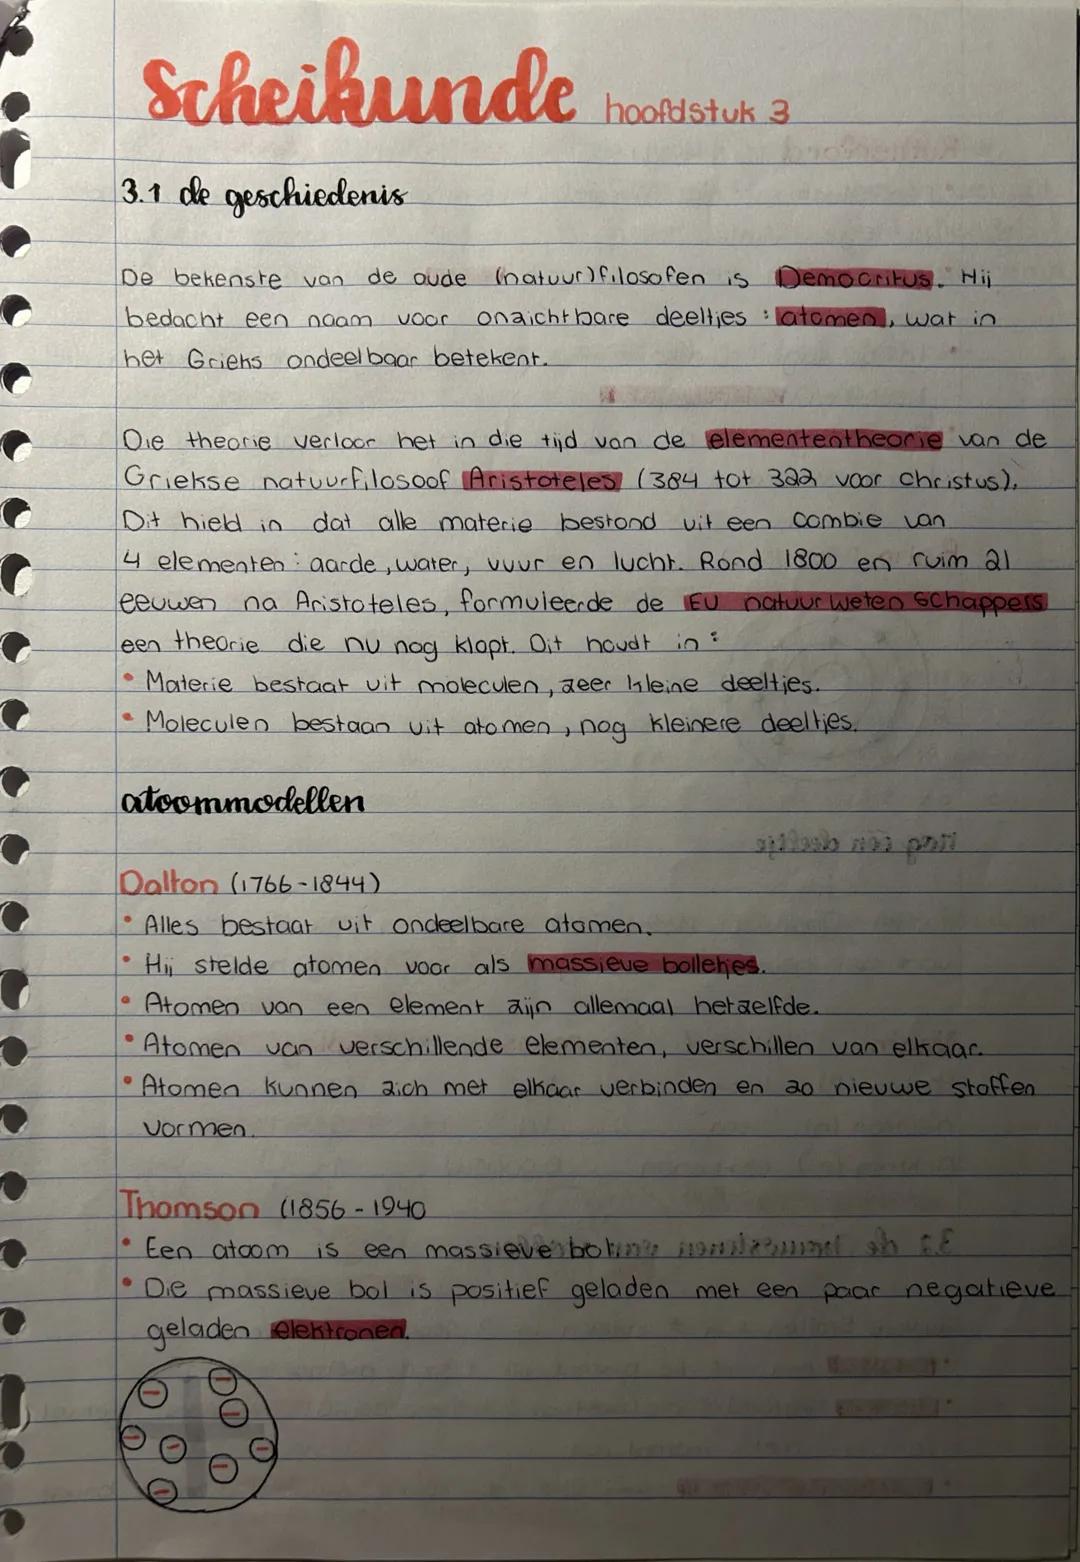 Scheikunde hoofdstuk 3
3.1 de geschiedenis
De bekenste van de oude (natuur)filosofen is Democritus. Hij
bedacht een naam voor onzichtbare deeltjes : atomen, wat in
het Grieks ondeelbaar betekent.
Die theorie verloor het in die tijd van de elemententheorie van de
Griekse natuurfilosoof Aristoteles (384 tot 322 voor christus).
Dit hield in dat alle materie bestond uit een combie van
4 elementen : aarde, water, vuur en lucht. Rond 1800 en ruim 21
eeuwen na Aristoteles, formuleerde de EU natuurwetenschappers
een theorie die nu nog klopt. Dit houdt in :
• Materie bestaat uit moleculen, zeer kleine deeltjes.
• Moleculen bestaan uit atomen, nog kleinere deeltjes.
atoommodellen
Dalton (1766-1844)
• Alles bestaat uit ondeelbare atomen.
• Hij stelde atomen voor als massieve bolletjes.
• Atomen van een element zijn allemaal hetzelfde.
• Atomen van verschillende elementen, verschillen van elkaar.
• Atomen kunnen zich met elkaar verbinden en zo nieuwe stoffen
vormen.
Thomson (1856 - 1940
• Een atoom is een massieve bol
• Die massieve bol is positief geladen met een paar negatieve
geladen elektronen.